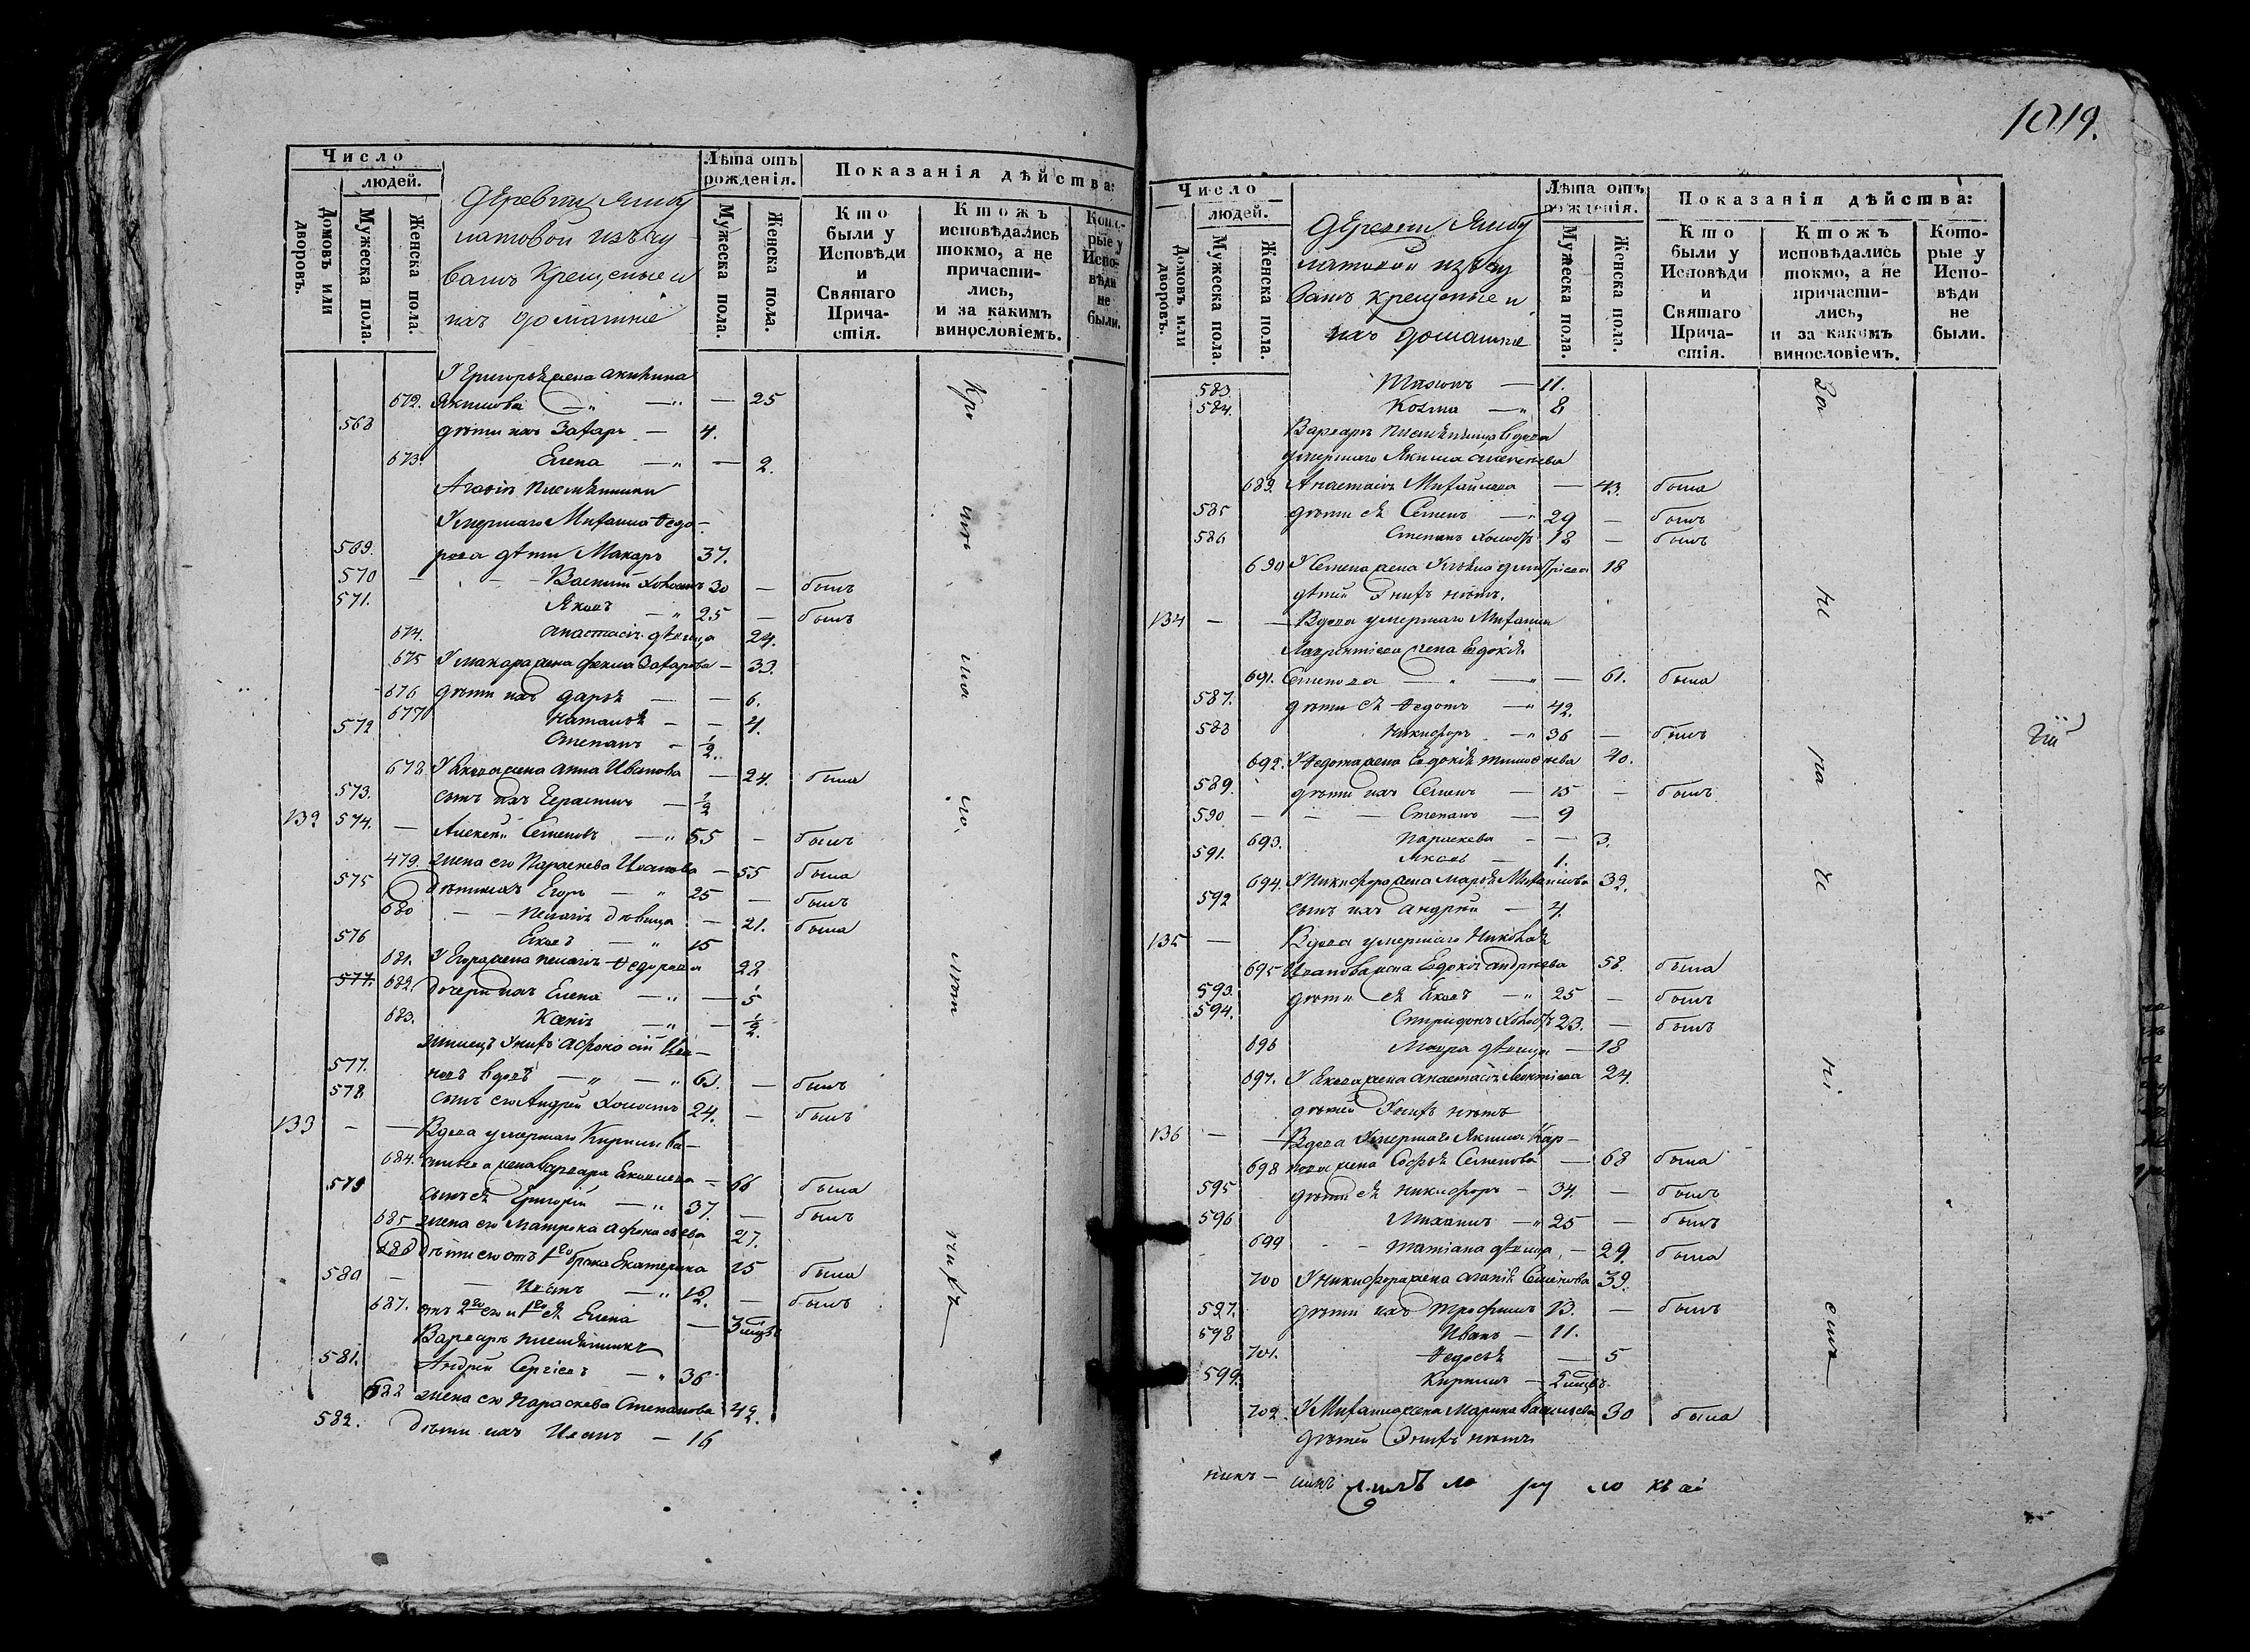 Число
людей.
Домовъ или дворовъ.
Мужеска пола.
Женска пола.
Деревни Янбу
латовой изъ чу
вашъ крещеные и
ихъ домашніе
Лѣта отъ рожденія.
Мужеска пола.
Женска пола.
Показанія дѣйства:
Кто были у Исповѣди и Святаго Причастія.
Ктожъ исповѣдались токмо, а не причастились, и за какимъ винословіемъ.
Которые у Исповѣди не были.
У Григорья жена Акилина
672. Якимова — 25
568 дѣти ихъ Захаръ — 4.
673. Елена — 2.
Агафіи племянники
Умершаго Михаила Ѳедо-
569. рова дѣти Макаръ 37.
570 — Василій холостъ 30 — былъ
571. Яковъ — 25 — былъ
674. Анастасія дѣвица 24.
675 У Макара жена Фекла Захарова — 33.
676 дѣти ихъ Дарья — 6.
677 Наталья — 4.
572 Степанъ — ½.
678 У Якова жена Анна Иванова — 24. была
573. сынъ ихъ Герасимъ — ½
132 574. — Алексѣй Семеновъ — 55 — былъ
479. жена его Параскева Иванова — 55 была
575 Дѣти ихъ Егоръ — 25 — былъ
680 — Пелагія дѣвица — 21. была
576 Яковъ — 15
681. У Егора жена Пелагія Ѳедорова 28
577. 682. Дочери ихъ Елена — 5
683. Ксенія — ½.
жилецъ у нихъ Афонасій Ива-
577. новъ вдовъ — 63. — былъ
578 сынъ его Андрей холостъ 24. — былъ
133 — — Вдова умершаго Кирила Ва-
684. сильева жена Варвара Яковлева — 66 была
579 сынъ ея Григорій — 37. — былъ
685 жена его Матрона Афонасьева 27.
686 Дѣти его отъ 1го брака Екатерина 15 была
580 — Иванъ — 12. — былъ
687. отъ 2го его и 1го ея Елена — 3 мцвъ
Варвары племянникъ
581. Андрей Сергіевъ — 36
688 жена его Параскева Степанова 42.
582. Дѣти ихъ Иванъ — 16
Кро
ми
ма
ло
лѣт
нихъ
1019.
Число
людей.
Домовъ или дворовъ.
Мужеска пола.
Женска пола.
Деревни Янбу
латовой изъ чу
вашъ крещеные и
ихъ домашніе
Лѣта отъ рожденія.
Мужеска пола.
Женска пола.
Показанія дѣйства:
Кто были у Исповѣди и Святаго Причастія.
Ктожъ исповѣдались токмо, а не причастились, и за какимъ винословіемъ.
Которые у Исповѣди не были.
583. — 11.
584. Козма — 8
Варвары племянница вдова
умершаго Якима Алексѣева
689. Анастасія Михайлова — 43. была
585 дѣти ея Семенъ — 29 — былъ
586 Степанъ холостъ 18 — былъ
690 У Семена жена Ульяна Дмитріева 18
дѣтей у нихъ нѣтъ.
134 — — Вдова умершаго Михаила
Лаврентіева жена Евдокія
691. Семенова — 61. была
587. дѣти ея Ѳедотъ — 42.
588 Никифоръ — 36 — былъ
692. У Ѳедота жена Евдокія Тимофѣева 40.
589. дѣти ихъ Семенъ — 15 — былъ
590 — — — Степанъ — 9
693. Параскева — 3.
591. Яковъ — 1.
694. У Никифора жена Марья Михайлова 32.
592 сынъ ихъ Андрей — 4.
135 — Вдова умершаго Николая
695 Иванова жена Евдокія Андреева 58. была
593. дѣти ея Яковъ — 25 — былъ
594. Спиридонъ холостъ 23. — былъ
696 Мавра дѣвица — 18
697. У Якова жена Анастасія Леонтіева 24.
дѣтей у нихъ нѣтъ
136 — — Вдова умершаго Якима Кар-
698 пова жена Софья Семенова — 68 была
595 дѣти ея Никифоръ — 34. — былъ
596 Михаилъ — 25 — былъ
699 — Татіана дѣвица — 29. была
700 У Никифора жена Агафія Семенова 39.
597. дѣти ихъ Трофимъ 13. — былъ
598 Иванъ — 11.
701. Ѳедосья — 5
599. Кирилъ — 5 мцвъ.
702. У Михаила жена Марина Васильева 30 была
дѣтей у нихъ нѣтъ